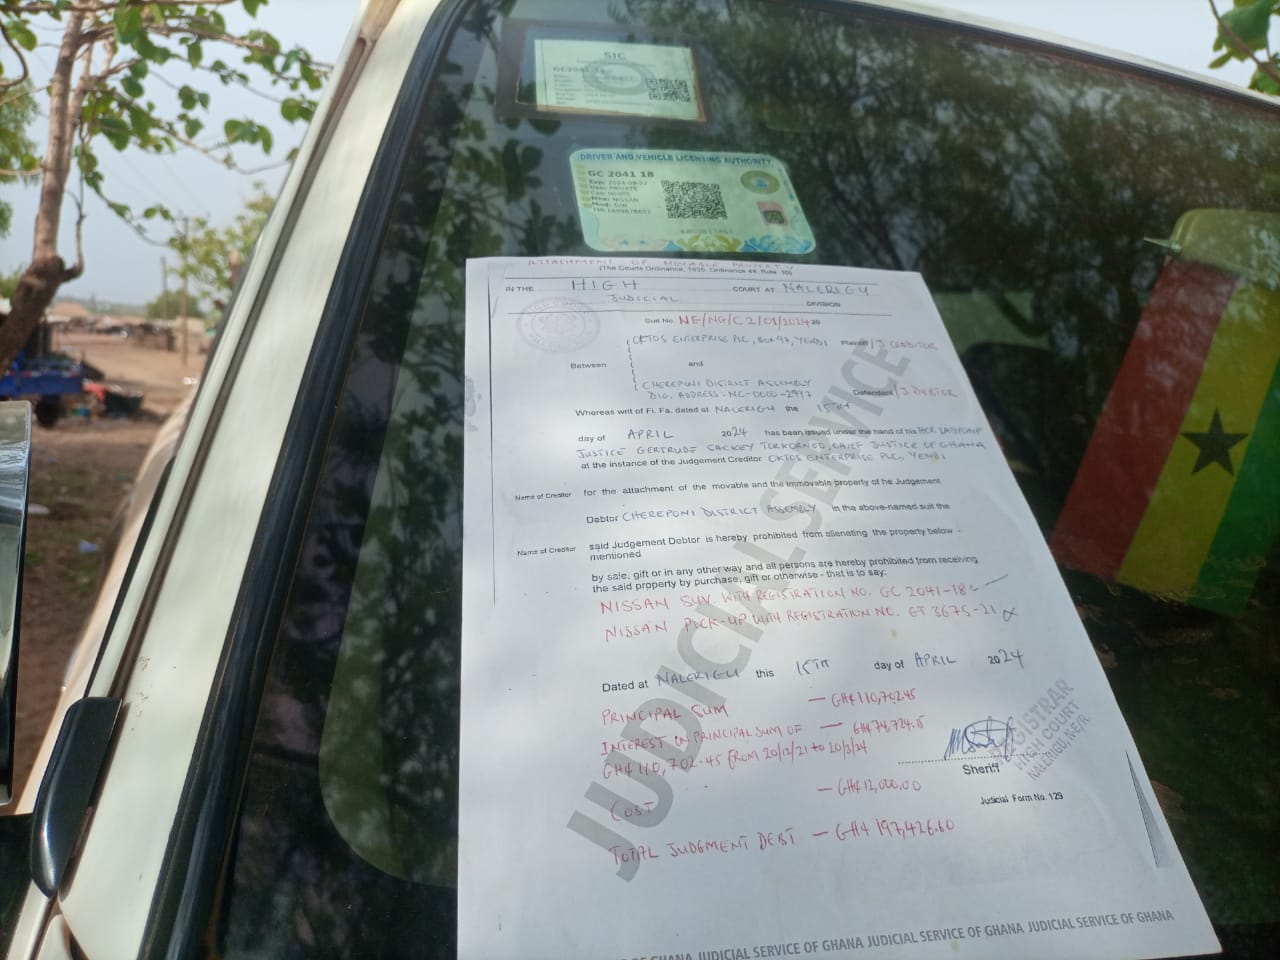 SIC
GC2041
DRIVER AND VEHICLE LICENSING AUTHORITY
GC 2041 18
Use: PRIVATE
Col: WHITE
Mke: NISSAN
ATTACHMENT OF MOVABLE PROPERTY
(The Courts Ordinance, 1935, Ordinance 44, Rule 10)
IN THE HIGH COURT AT NALERIGU
JUDICIAL DIVISION
Suit No. NE/NG/C2/01/2024 20
OKTOS ENTERPRISE PLC, BOX 97, YENDI Plaintiff/J CREDITOR
Between and
CHEREPONI DISTRICT ASSEMBLY
DIG. ADDRESS: NC-0000-2997 Defendant/J DEBTOR
Whereas writ of Fi. Fa. dated at NALERIGU the 15TH
day of APRIL 2024 has been issued under the hand of his HER LADYSHIP
JUSTICE GERTRUDE SACKEY TORKORNOO, CHIEF JUSTICE OF GHANA
at the instance of the Judgement Creditor OKTOS ENTERPRISE PLC, YENDI
Name of Creditor for the attachment of the movable and the immovable property of he Judgement
Debtor CHEREPONI DISTRICT ASSEMBLY in the above-named suit the
Name of Creditor said Judgement Debtor is hereby prohibited from alienating the property below -
mentioned
by sale, gift or in any other way and all persons are hereby prohibited from receiving
the said property by purchase, gift or otherwise - that is to say:
NISSAN SUV WITH REGISTRATION NO. GC 2041-18
NISSAN PICK-UP WITH REGISTRATION NO. ET 3675-21
Dated at NALERIGU this 15TH day of APRIL 2024
PRINCIPAL SUM — GH¢110,702.45
INTEREST ON PRINCIPAL SUM OF — GH¢74,724.15
GH¢110,702.45 FROM 20/12/21 to 20/3/24
COST — GH¢12,000.00
TOTAL JUDGMENT DEBT — GH¢197,426.60
REGISTRAR
HIGH COURT
NALERIGU, N/E/R.
Sheriff
Judicial Form No. 129
JUDICIAL SERVICE
OF GHANA JUDICIAL SERVICE OF GHANA JUDICIAL SERVICE OF GHANA JUDICIAL SERVICE OF GHANA